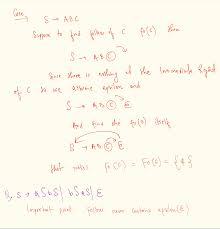 Case S → ABC
Suppose to find follow of C fo(C) then
S → AB C
Since there is nothing at the immediate right
of C so we assume epsilon and
S → AB C E
And find the fo(S) itself
S → AB C E
that makes fo(C) = Fo(S) = {$}
S → aSbS | bSaS | E
Important point follow never contains epsilon (E)